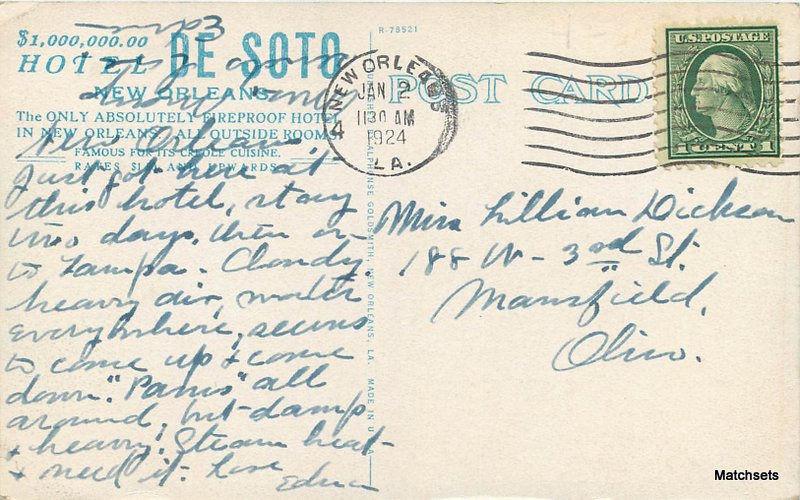 R-78521
$1,000,000.00
HOTEL DE SOTO
NEW ORLEANS
The ONLY ABSOLUTELY FIREPROOF HOTEL
IN NEW ORLEANS. ALL OUTSIDE ROOMS
FAMOUS FOR ITS CREOLE CUISINE.
RATES AND UPWARDS
POST CARD
NEW ORLEANS
JAN 2
1130 AM
1924
LA.
U.S. POSTAGE
1 CENT 1
New Orleans
Just got here at
this hotel, stay
two days, then on
to Tampa. Cloudy
heavy air, water
everywhere, seems
to come up & come
down. "Pams" all
around, but damp
& heavy! Steam heat
& need it. Love
Edna
Miss Lillian Dickson
188 W- 3rd St.
Mansfield,
Ohio.
ALPHONSE GOLDSMITH, NEW ORLEANS, LA. MADE IN U.S.A.
Matchsets